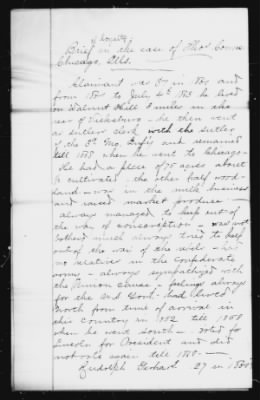 & loyalty
Brief in the case of Thos Conner
Chicago, Ills.
Claimant was 37 in 1864 and
from 1860 to July 4th 1863 he lived
on Walnut Hill 8 miles in the
rear of Vicksburg - he then went
as sutlers clerk with the sutler
of the 3d Mo. Infty and remained
till 1865 when he went to Chicago -
He had a place of 75 acres about
½ cultivated & the other half wood-
land - was in the milk business
and raised market produce -
always managed to keep out of
the way of conscription - was not
bothered much always tried to keep
out of the way of the rebels - had
no relative in the confederate
army - always sympathized with
the Union cause - feelings always
for the U.S. Govt. had lived
North from time of arrival in
this country in 1852 till 1858
when he went South - voted for
Lincoln for President and did
not vote again till 1870 -
Rudolph Gerhart 27 in 1860